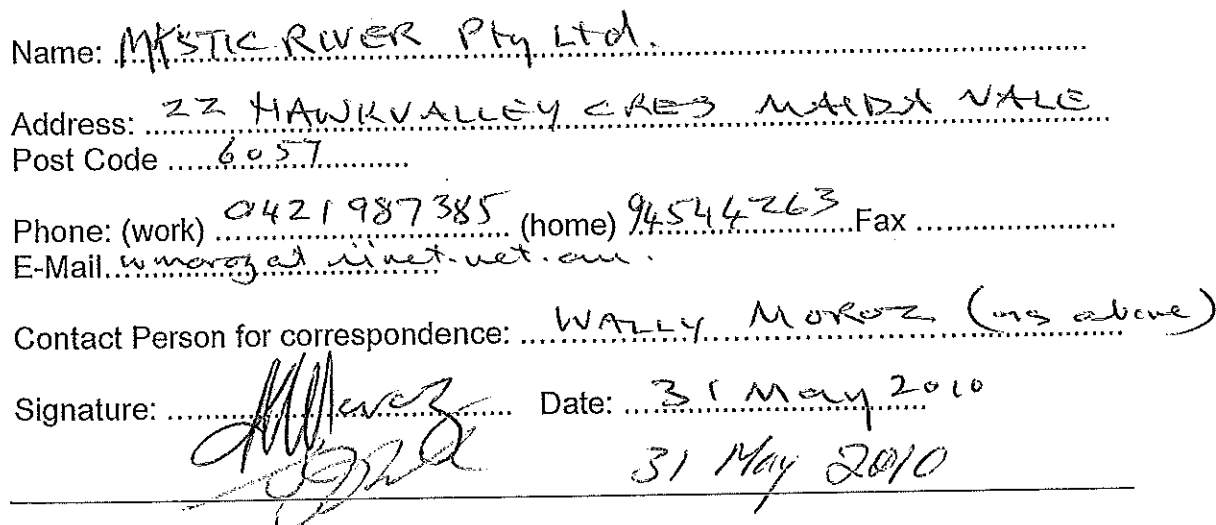 Name: MYSTIC RIVER Pty Ltd.
Address: 22 HAWKVALLEY CRES MAIDA VALE
Post Code 6057
Phone: (work) 0421987385 (home) 94544263 Fax
E-Mail wmoroz at iinet.net.au.
Contact Person for correspondence: WALLY MOROZ (as above)
Signature: Date: 31 May 2010
31 May 2010